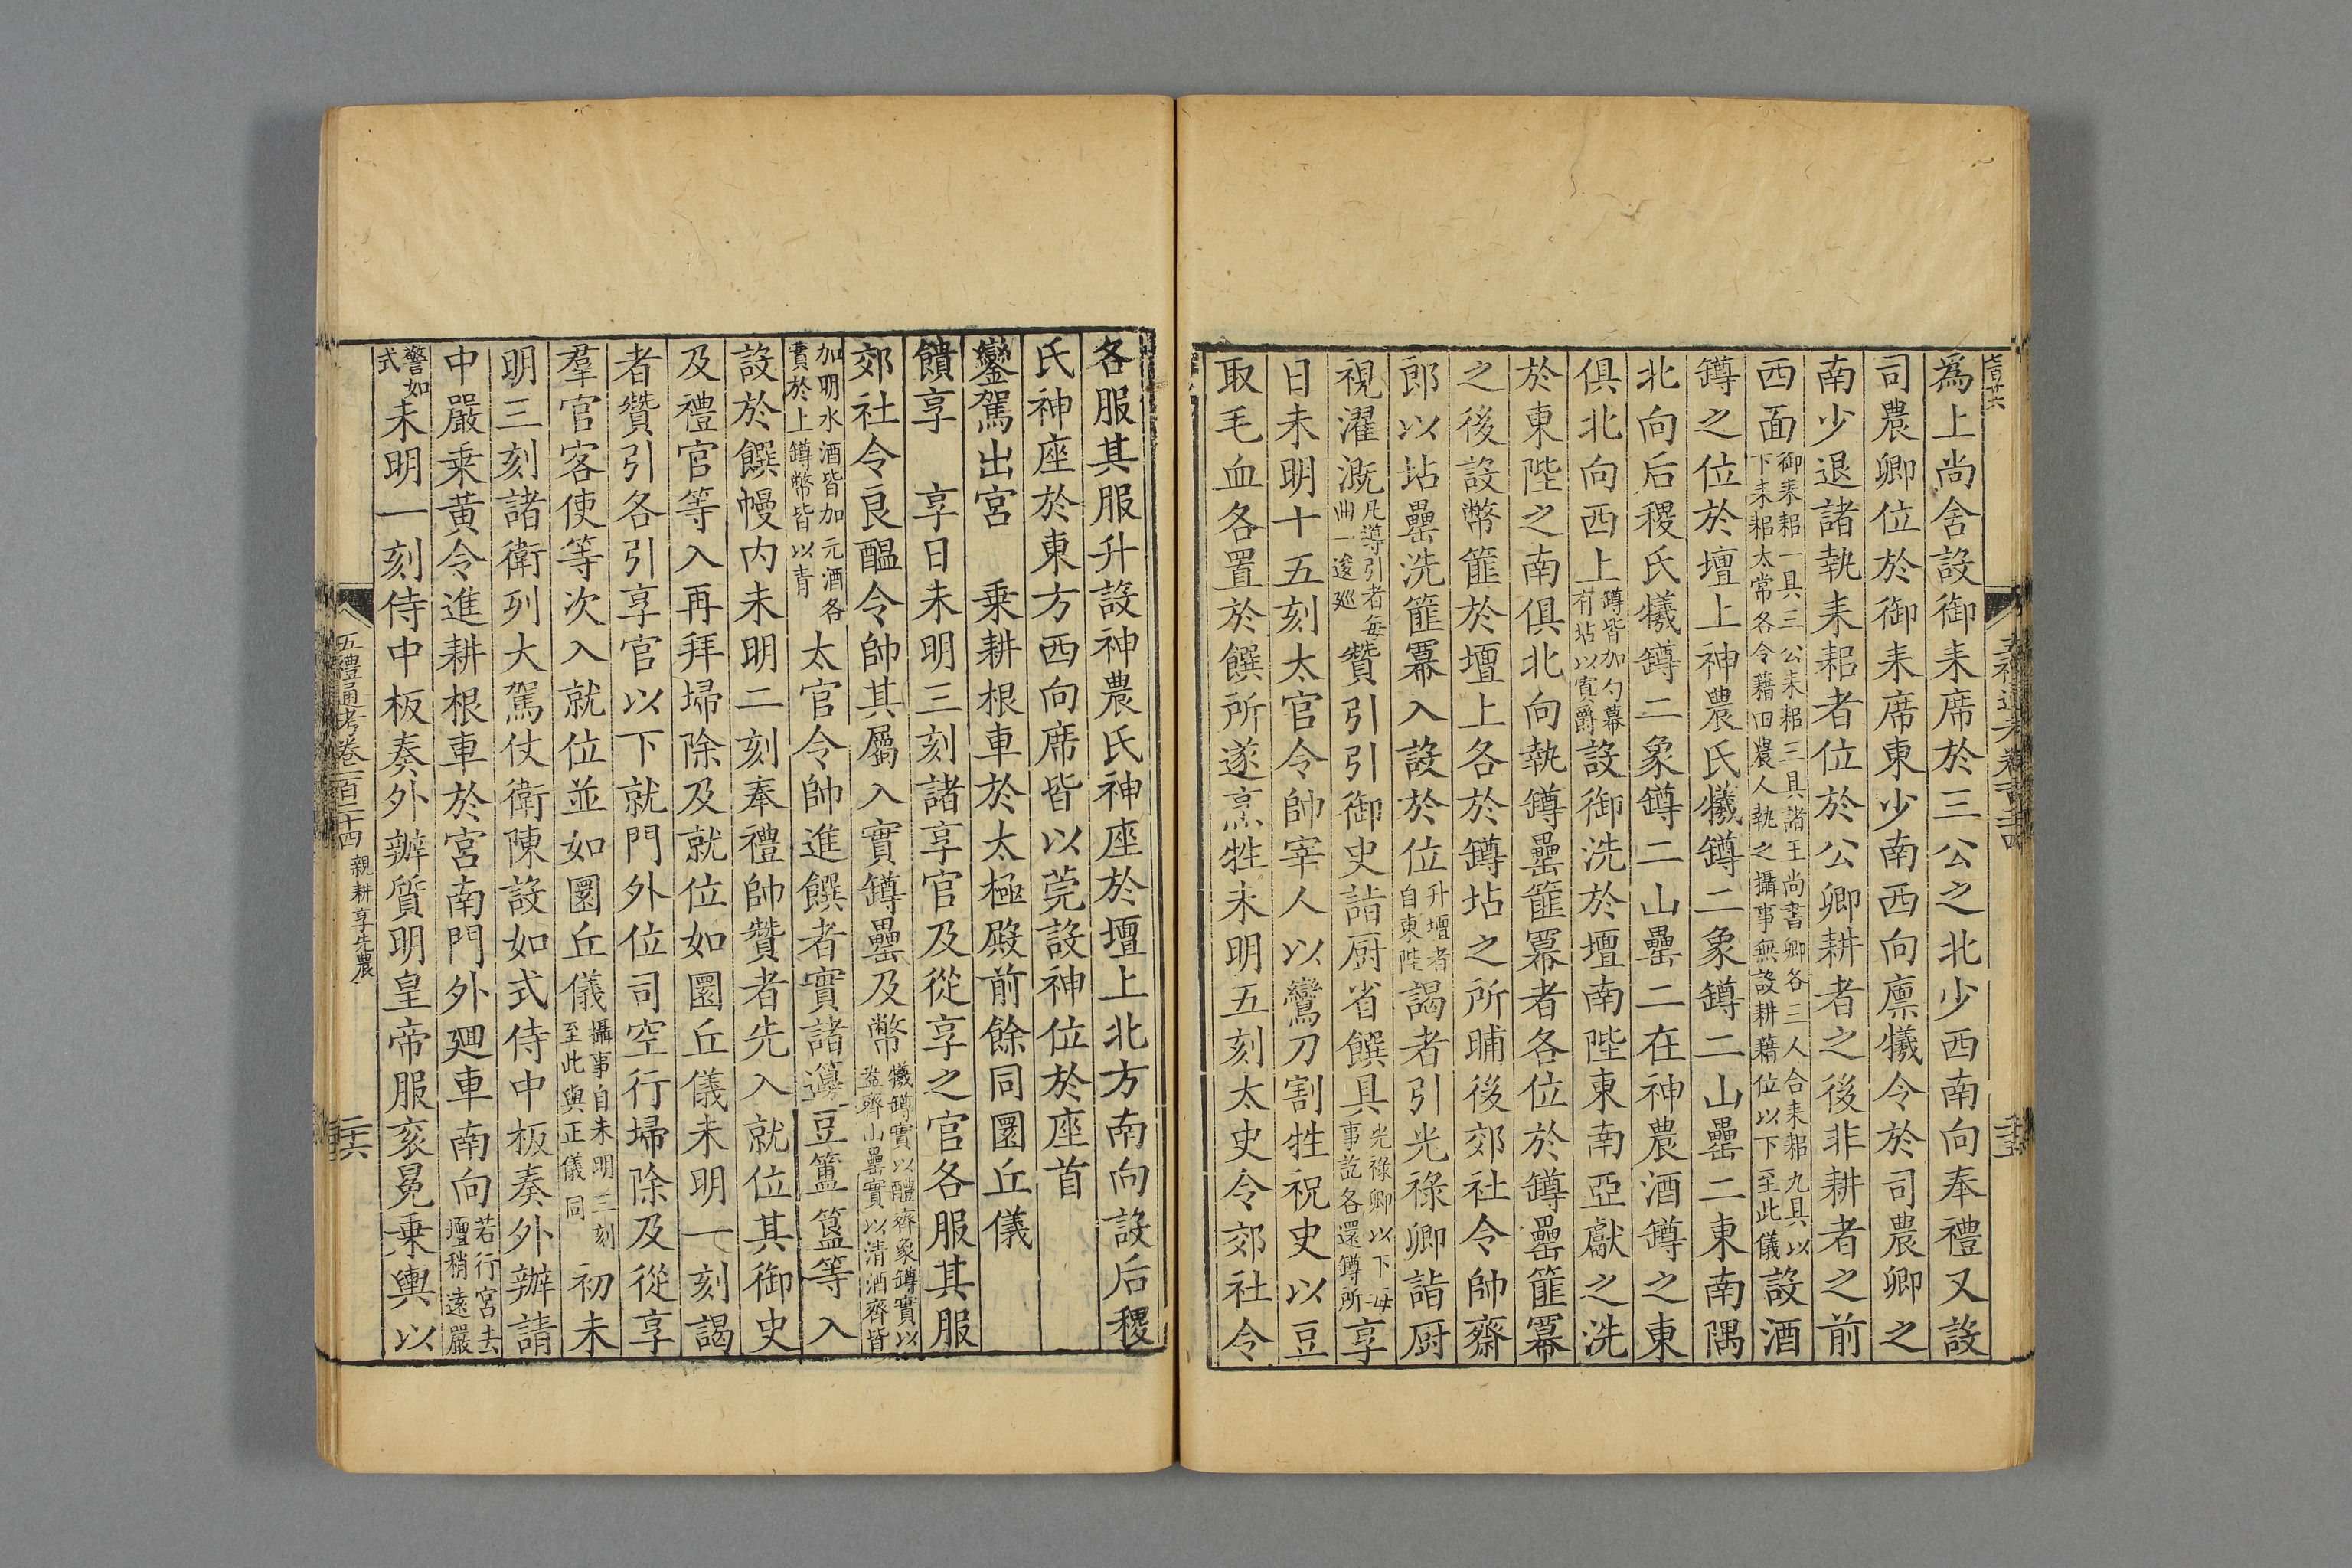 為上尚舍設御耒席於三公之北少西南向奉禮又設
司農卿位於御耒席東少南西向廩犧令於司農卿之
南少退諸執耒耜者位於公卿耕者之後非耕者之前
西面御耒耜一具三公耒耜三具諸王尚書卿各三人合耒耜九具以下耒耜太常各令藉田農人執之攝事無設耕藉位以下至此儀設酒
罇之位於壇上神農氏犧罇二象罇二山罍二東南隅
北向后稷氏犧罇二象罇二山罍二在神農酒罇之東
俱北向西上罇皆加勺冪有坫以寘爵設御洗於壇南陛東南亞獻之洗
於東陛之南俱北向執罇罍篚冪者各位於罇罍篚冪
之後設幣篚於壇上各於罇坫之所晡後郊社令帥齋
郎以坫罍洗篚冪入設於位升壇者自東陛謁者引光祿卿詣厨
視濯溉凡導引者每曲一逡廵贊引引御史詣厨省饌具光祿卿以下每事訖各還罇所享
日未明十五刻太官令帥宰人以鸞刀割牲祝史以豆
取毛血各置於饌所遂烹牲未明五刻太史令郊社令
各服其服升設神農氏神座於壇上北方南向設后稷
氏神座於東方西向席皆以莞設神位於座首
鑾駕出宮　乗耕根車於太極殿前餘同圜丘儀
饋享　享日未明三刻諸享官及從享之官各服其服
郊社令良醞令帥其屬入實罇罍及幣犧罇實以醴齊象罇實以盎齊山罍實以清酒齊皆
加明水酒皆加元酒各實於上罇幣皆以青太官令帥進饌者實諸籩豆簠簋等入
設於饌幔内未明二刻奉禮帥贊者先入就位其御史
及禮官等入再拜埽除及就位如圜丘儀未明一刻謁
者贊引各引享官以下就門外位司空行埽除及從享
羣官客使等次入就位並如圜丘儀攝事自未明三刻至此與正儀同初未
明三刻諸衛列大駕仗衛陳設如式侍中板奏外辦請
中嚴乗黃令進耕根車於宮南門外廻車南向若行宮去壇稍遠嚴
警如式未明一刻侍中板奏外辦質明皇帝服衮冕乗輿以
五禮通考卷一百二十四 親耕享先農
二十六